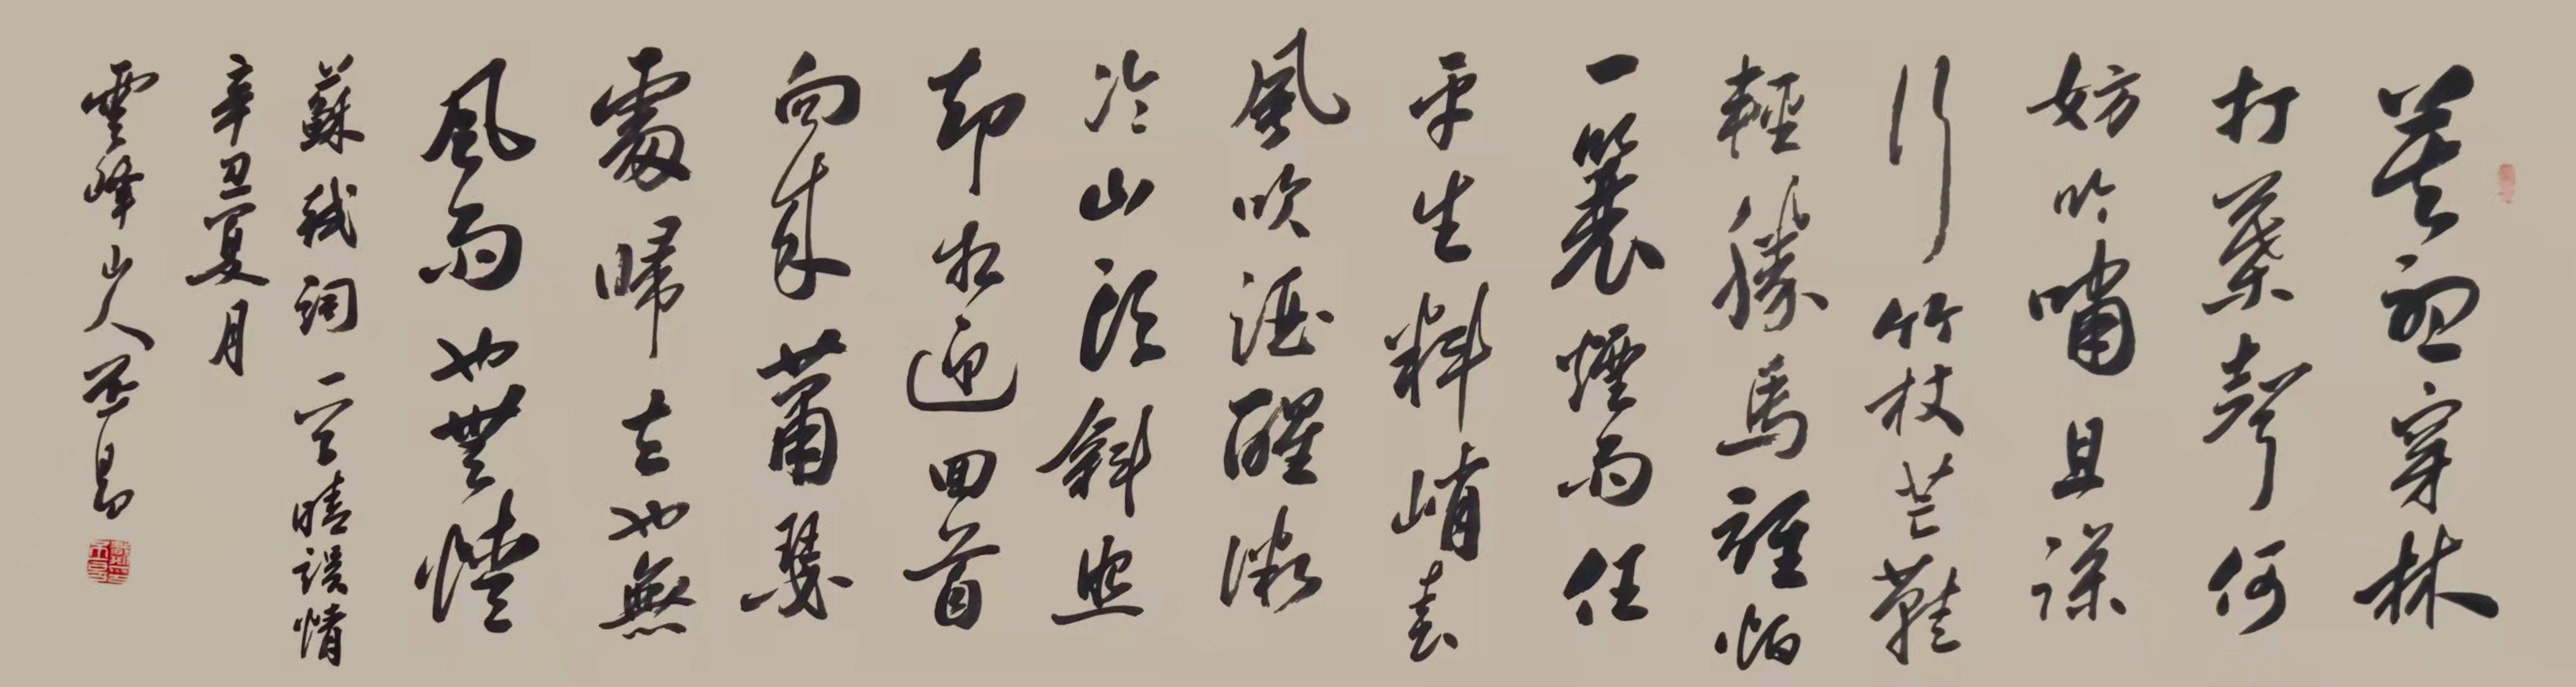 莫聽穿林
打葉聲何
妨吟嘯且徐
行竹杖芒鞋
輕勝馬誰怕
一蓑煙雨任
平生料峭春
風吹酒醒微
冷山頭斜照
却相迎回首
向來蕭瑟
處歸去也無
風雨也無情
蘇軾詞一字晴誤情
辛丑夏月
雲峰山人